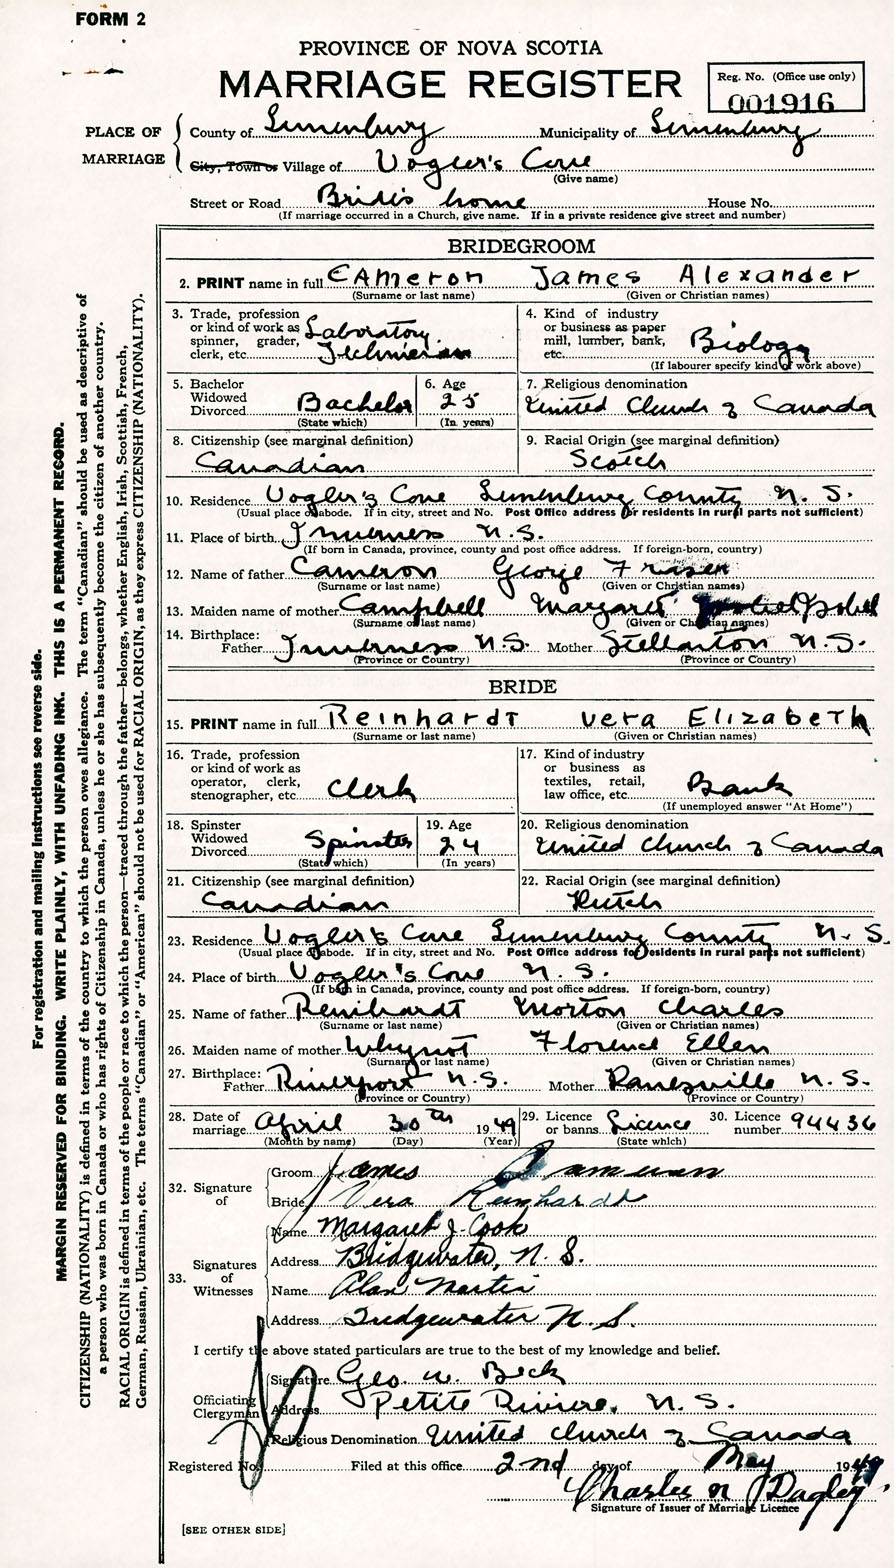 FORM 2
PROVINCE OF NOVA SCOTIA
MARRIAGE REGISTER
Reg. No. (Office use only)
001916
PLACE OF MARRIAGE
County of Lunenburg Municipality of Lunenburg
City, Town or Village of Vogler's Cove
(Give name)
Street or Road Bride's home House No.
(If marriage occurred in a Church, give name. If in a private residence give street and number)
BRIDEGROOM
2. PRINT name in full Cameron James Alexander
(Surname or last name) (Given or Christian names)
3. Trade, profession or kind of work as spinner, grader, clerk, etc. Laboratory Technician
4. Kind of industry or business as paper mill, lumber, bank, etc. Biology
(If labourer specify kind of work above)
5. Bachelor Widowed Divorced Bachelor
(State which)
6. Age 25
(In years)
7. Religious denomination
United Church of Canada
8. Citizenship (see marginal definition)
Canadian
9. Racial Origin (see marginal definition)
Scotch
10. Residence Vogler's Cove Lunenburg County N. S.
(Usual place of abode. If in city, street and No. Post Office address for residents in rural parts not sufficient)
11. Place of birth Inverness N.S.
(If born in Canada, province, county and post office address. If foreign-born, country)
12. Name of father Cameron George Fraser
(Surname or last name) (Given or Christian names)
13. Maiden name of mother Campbell Margaret Isobel
(Surname or last name) (Given or Christian names)
14. Birthplace: Father Inverness N.S. Mother Stellarton N.S.
(Province or Country) (Province or Country)
BRIDE
15. PRINT name in full Reinhardt Vera Elizabeth
(Surname or last name) (Given or Christian names)
16. Trade, profession or kind of work as operator, clerk, stenographer, etc. Clerk
17. Kind of industry or business as textiles, retail, law office, etc. Bank
(If unemployed answer "At Home")
18. Spinster Widowed Divorced Spinster
(State which)
19. Age 24
(In years)
20. Religious denomination
United Church of Canada
21. Citizenship (see marginal definition)
Canadian
22. Racial Origin (see marginal definition)
Dutch
23. Residence Vogler's Cove Lunenburg County N. S.
(Usual place of abode. If in city, street and No. Post Office address for residents in rural parts not sufficient)
24. Place of birth Vogler's Cove N. S.
(If born in Canada, province, county and post office address. If foreign-born, country)
25. Name of father Reinhardt Morton Charles
(Surname or last name) (Given or Christian names)
26. Maiden name of mother Whynot Florence Ellen
(Surname or last name) (Given or Christian names)
27. Birthplace: Father Riverport N.S. Mother N. S.
(Province or Country) (Province or Country)
28. Date of marriage April 30th 1949
(Month by name) (Day) (Year)
29. Licence or banns Licence
(State which)
30. Licence number 94436
32. Signature of
Groom James Cameron
Bride Vera Reinhardt
33. Signatures of Witnesses
Name Margaret J. Cook
Address Bridgewater, N. S.
Name Alan Martin
Address Bridgewater N. S.
I certify the above stated particulars are true to the best of my knowledge and belief.
Officiating Clergyman
Signature Geo. W. Beck
Address Petite Riviere, N. S.
Religious Denomination United Church of Canada
Registered No. Filed at this office 2nd day of May 1949
Charles N Dagley
Signature of Issuer of Marriage Licence
[SEE OTHER SIDE]
For registration and mailing instructions see reverse side.
MARGIN RESERVED FOR BINDING. WRITE PLAINLY, WITH UNFADING INK. THIS IS A PERMANENT RECORD.
CITIZENSHIP (NATIONALITY) is defined in terms of the country to which the person owes allegiance. The term "Canadian" should be used as descriptive of
a person who was born in Canada or who has rights of Citizenship in Canada, unless he or she has subsequently become the citizen of another country.
RACIAL ORIGIN is defined in terms of the people or race to which the person—traced through the father—belongs, whether English, Irish, Scottish, French,
German, Russian, Ukrainian, etc. The terms "Canadian" or "American" should not be used for RACIAL ORIGIN, as they express CITIZENSHIP (NATIONALITY).